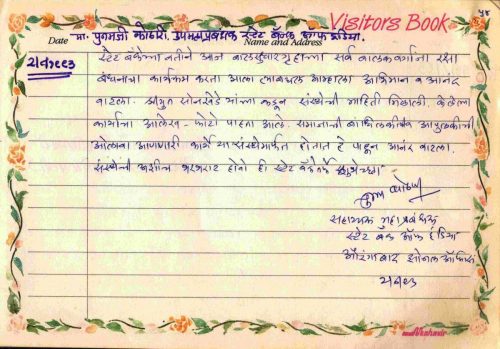 ५४
Visitors Book
Date
Name and Address
मा. पुनमजी कोठारी, उपमहाप्रबंधक स्टेट बँक ऑफ इंडिया.
स्टेट बँकेच्या वतीने आज बालसुधारगृहाच्या सर्व बालकवर्गाना रक्षा
बंधनाचा कार्यक्रम करता आला त्याबद्दल आम्हाला अभिमान व आनंद
वाटला. श्रीयुत सोनखेडे यांच्या कडून संस्थेची माहिती मिळाली. केलेल्या
कार्याचा आलेख - फोटो पाहता आले. समाजाची बांधिलकी आपुलकीची
ओलावा आणणारी कार्ये या संस्थेमार्फत होतात हे पाहून आनंद वाटला.
संस्थेची अशीच भरभराट होवो ही स्टेट बँकेतर्फे शुभेच्छा
सहाय्यक महाप्रबंधक
स्टेट बँक ऑफ इंडिया
औरंगाबाद झोनल ऑफिस
Mahavir